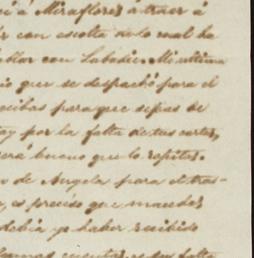 á Miraflores á traer á
con escolta de lo cual ha
hablar con Labadie. Mi ultima
que se despachó para el
recibas para que sepas de
por la falta de tus cartas,
será bueno que lo repitas.
de Angela para el tras-
es preciso que mandes
debia yo haber recibido